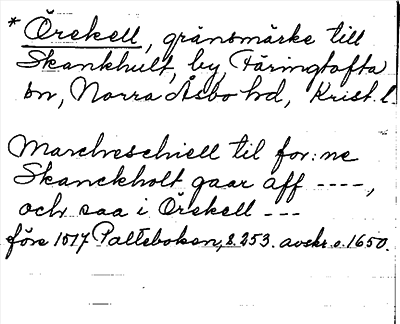 * Örekell, gränsmärke till
Skankhult, by, Färingtofta
sn, Norra Åsbo hd, Krist. l.
Marchreschiell til for:ne
Skanckholt gaar aff ----,
och saa i Örekell ---
före 1517 Palteboken, s. 253. avskr. o. 1650.